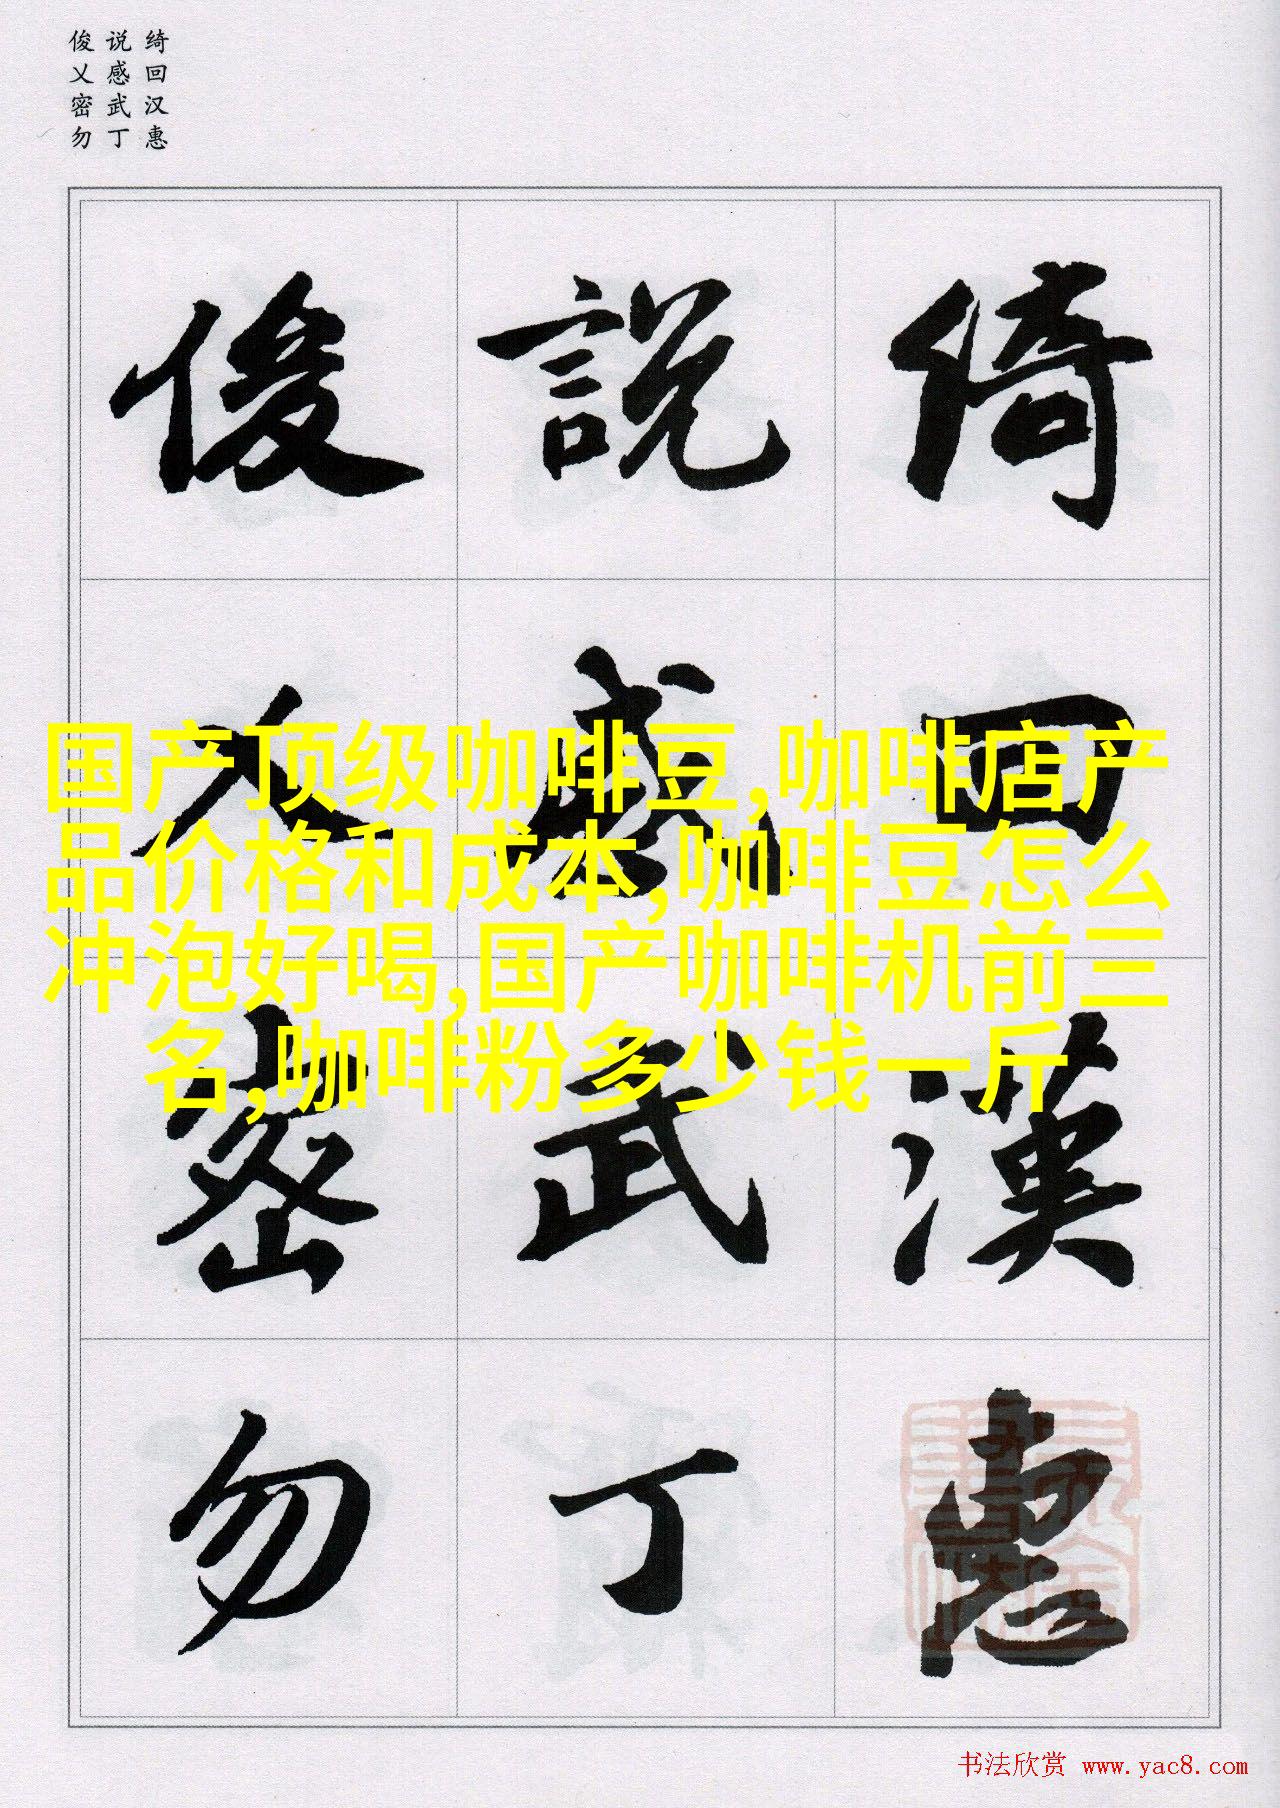 绮回汉惠
说感武丁
俊乂密勿
綺回漢惠
説感武丁
俊乂密勿
国产顶级咖啡豆,咖啡店产
品价格和成本,咖啡豆怎么
冲泡好喝,国产咖啡机前三
名,咖啡粉多少钱一斤
书法欣赏 www.yac8.com